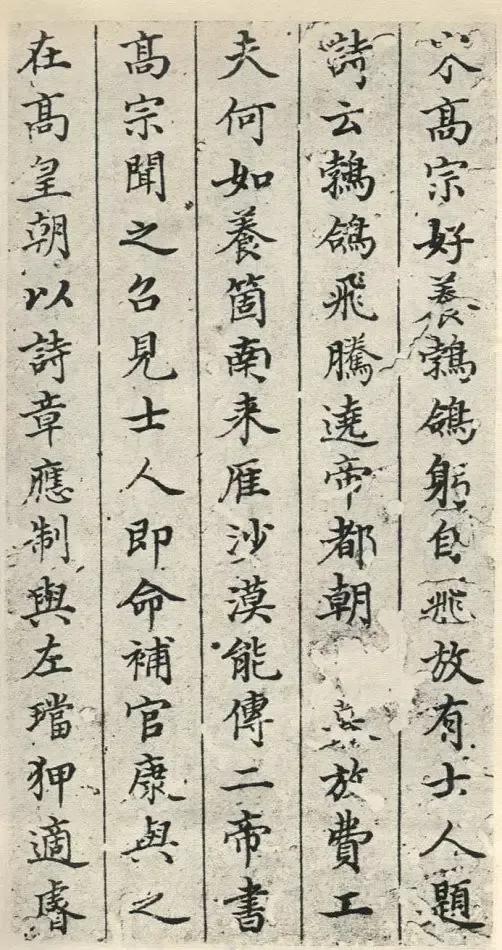 高宗好養鵓鴿躬自飛放有士人題
詩云鵓鴿飛騰遶帝都朝暮放費工
夫何如養箇南来雁沙漠能傳二帝書
高宗聞之召見士人即命補官康與之
在高皇朝以詩章應制與左璫狎適睿